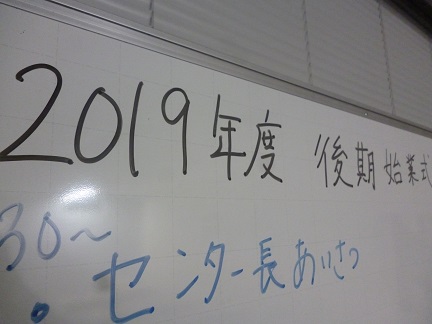 2019年度 後期始業式
30～
・センター長あいさつ